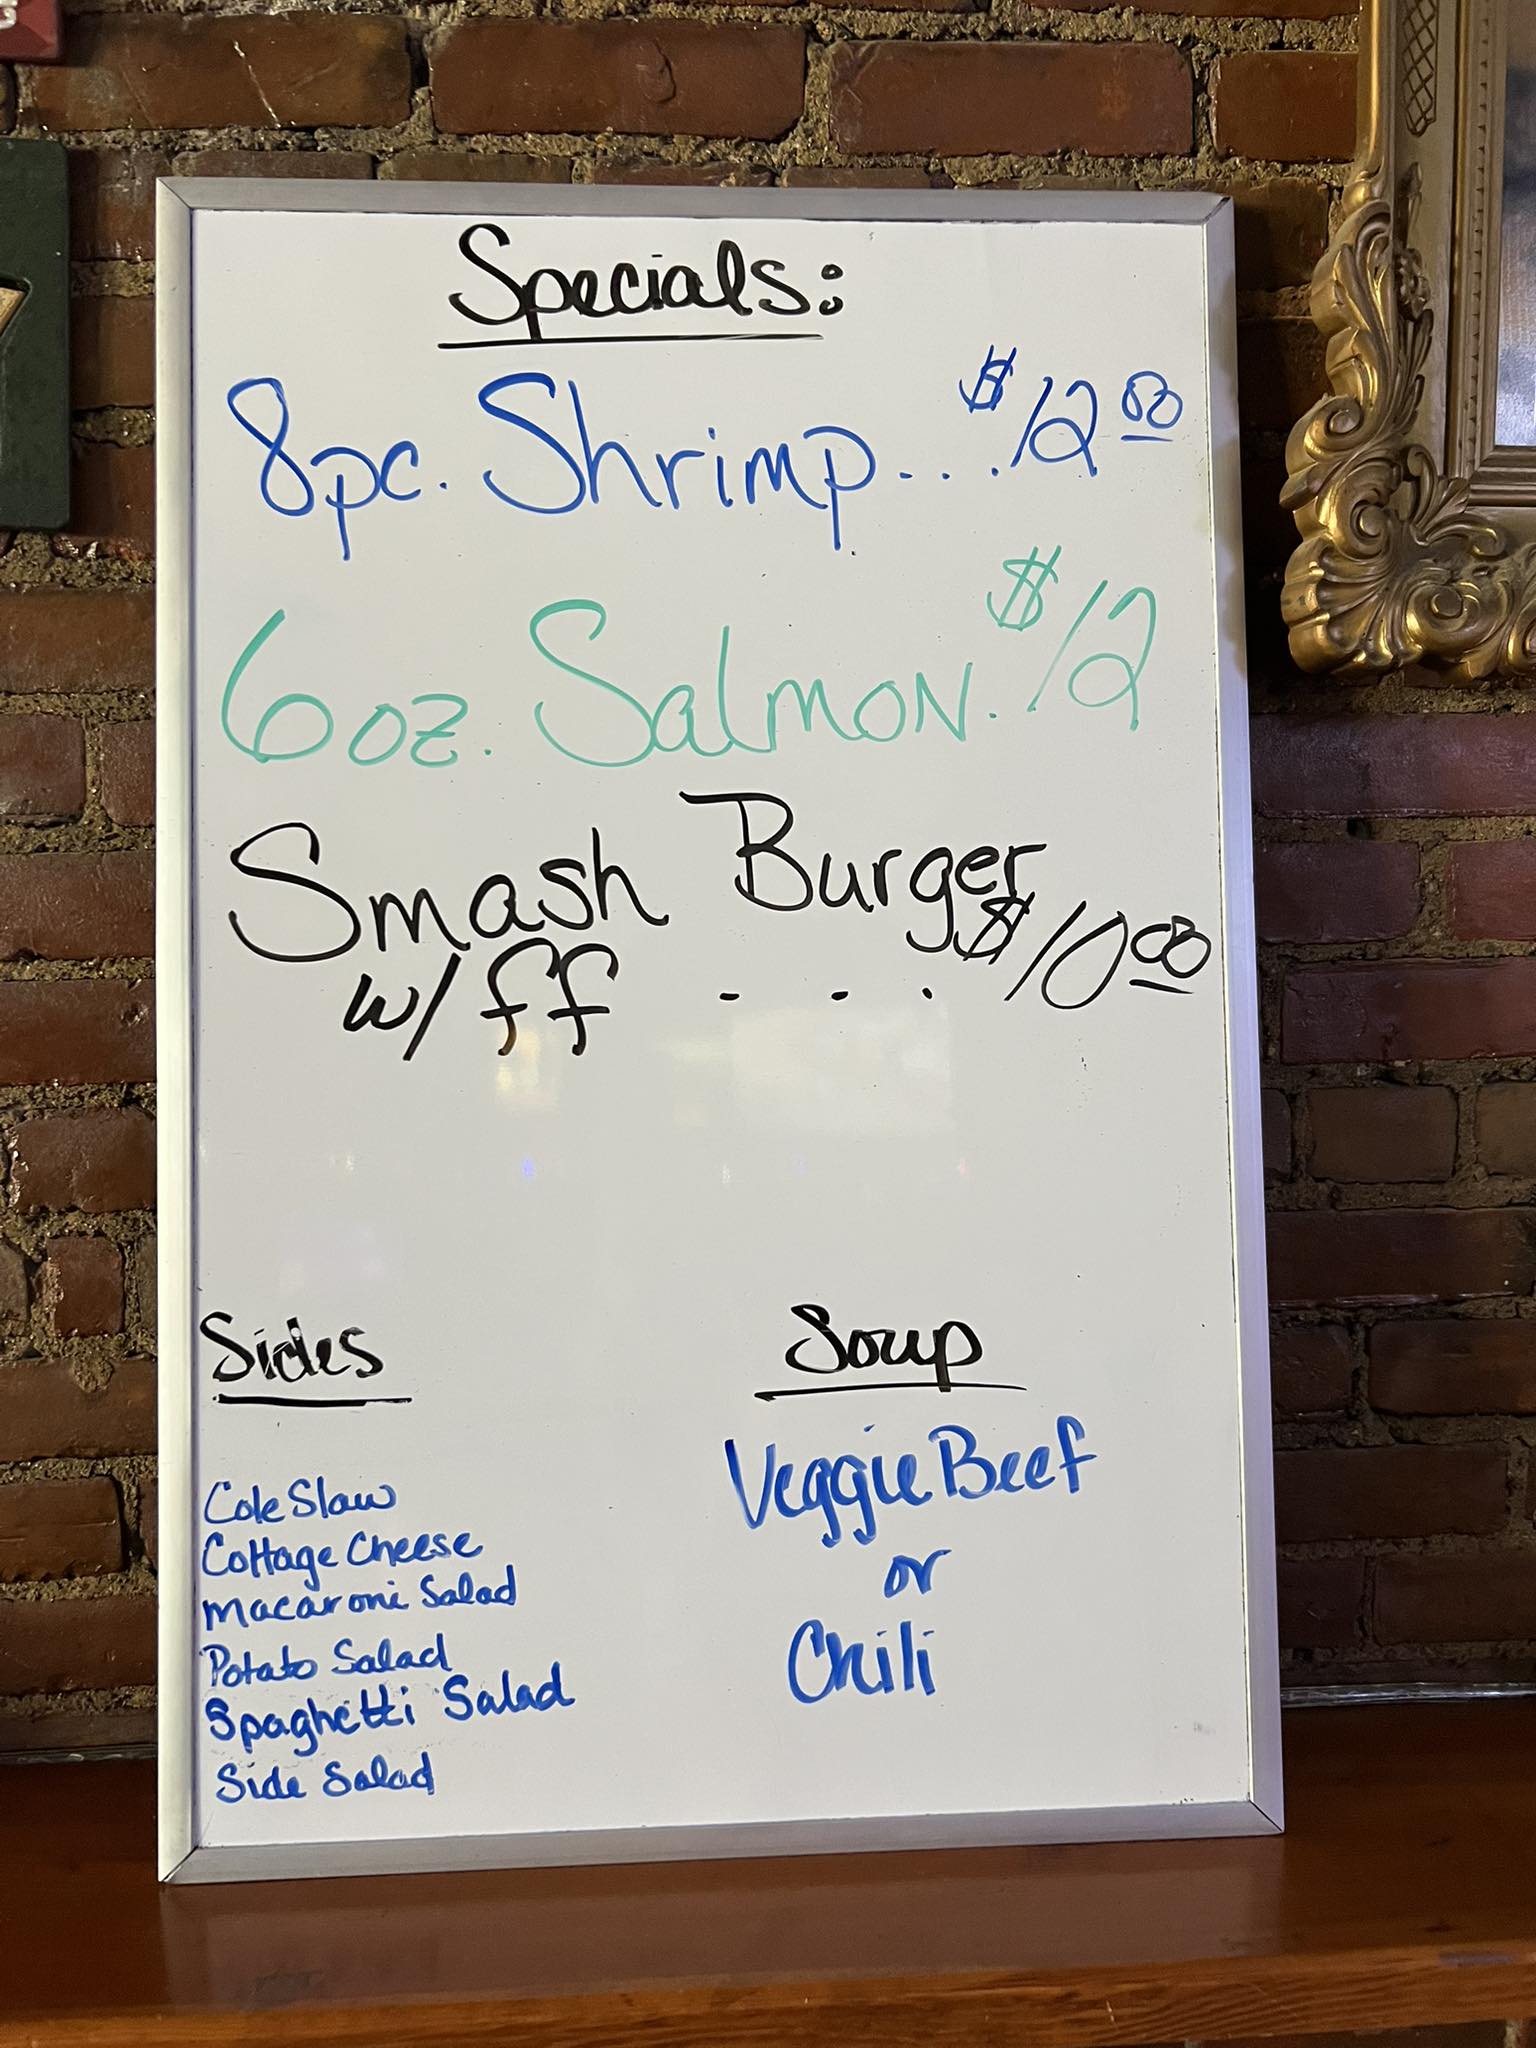 Specials:
8pc. Shrimp... $12.00
6oz. Salmon. $12
Smash Burger
w/ff ... $10.00
Sides
Cole Slaw
Cottage Cheese
Macaroni Salad
Potato Salad
Spaghetti Salad
Side Salad
Soup
Veggie Beef
or
Chili